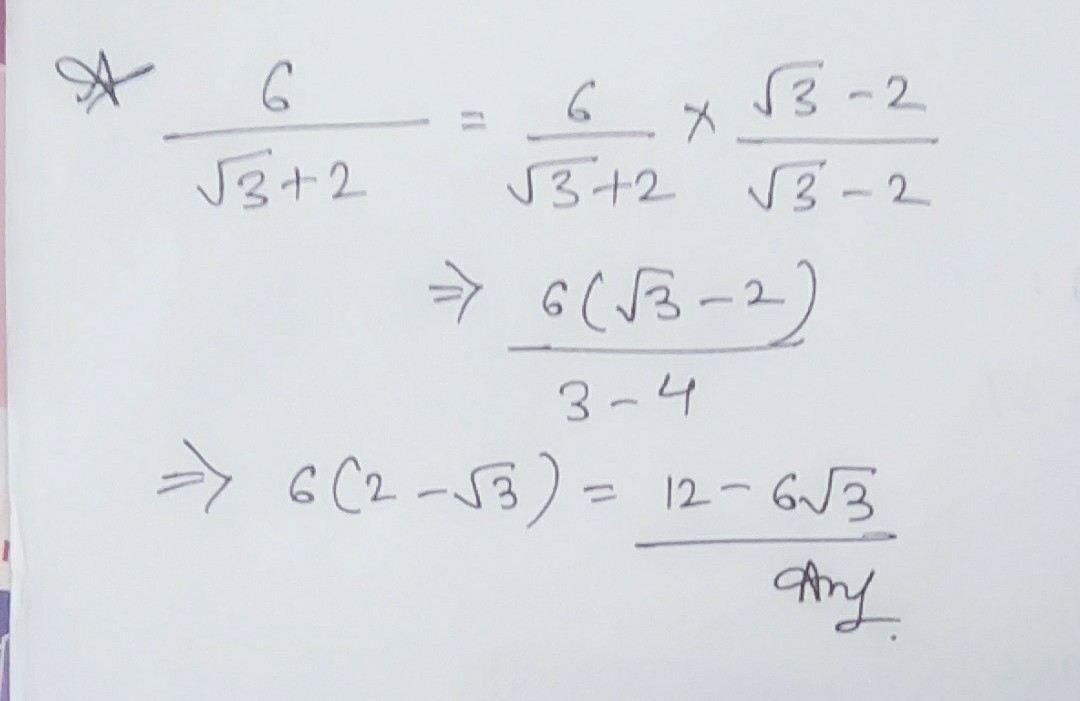 6/(√3+2) = 6/(√3+2) × (√3-2)/(√3-2)
⇒ 6(√3-2)/(3-4)
⇒ 6(2-√3) = 12-6√3
Ans.